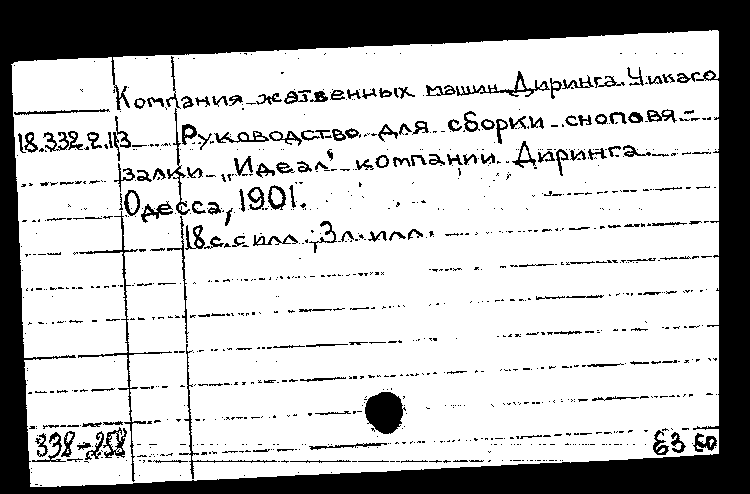 Компания жатвенных машин Диринга. Чикаго
18.332.2.113 Руководство для сборки сноповя-
залки „Идеал" компании Диринга.
Одесса, 1901.
18 с. с илл.; 3 л. илл.
338-258 63 60